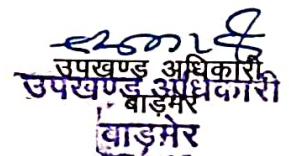 उपखण्ड अधिकारी
उपखण्ड अधिकारी
बाड़मेर
बाड़मेर